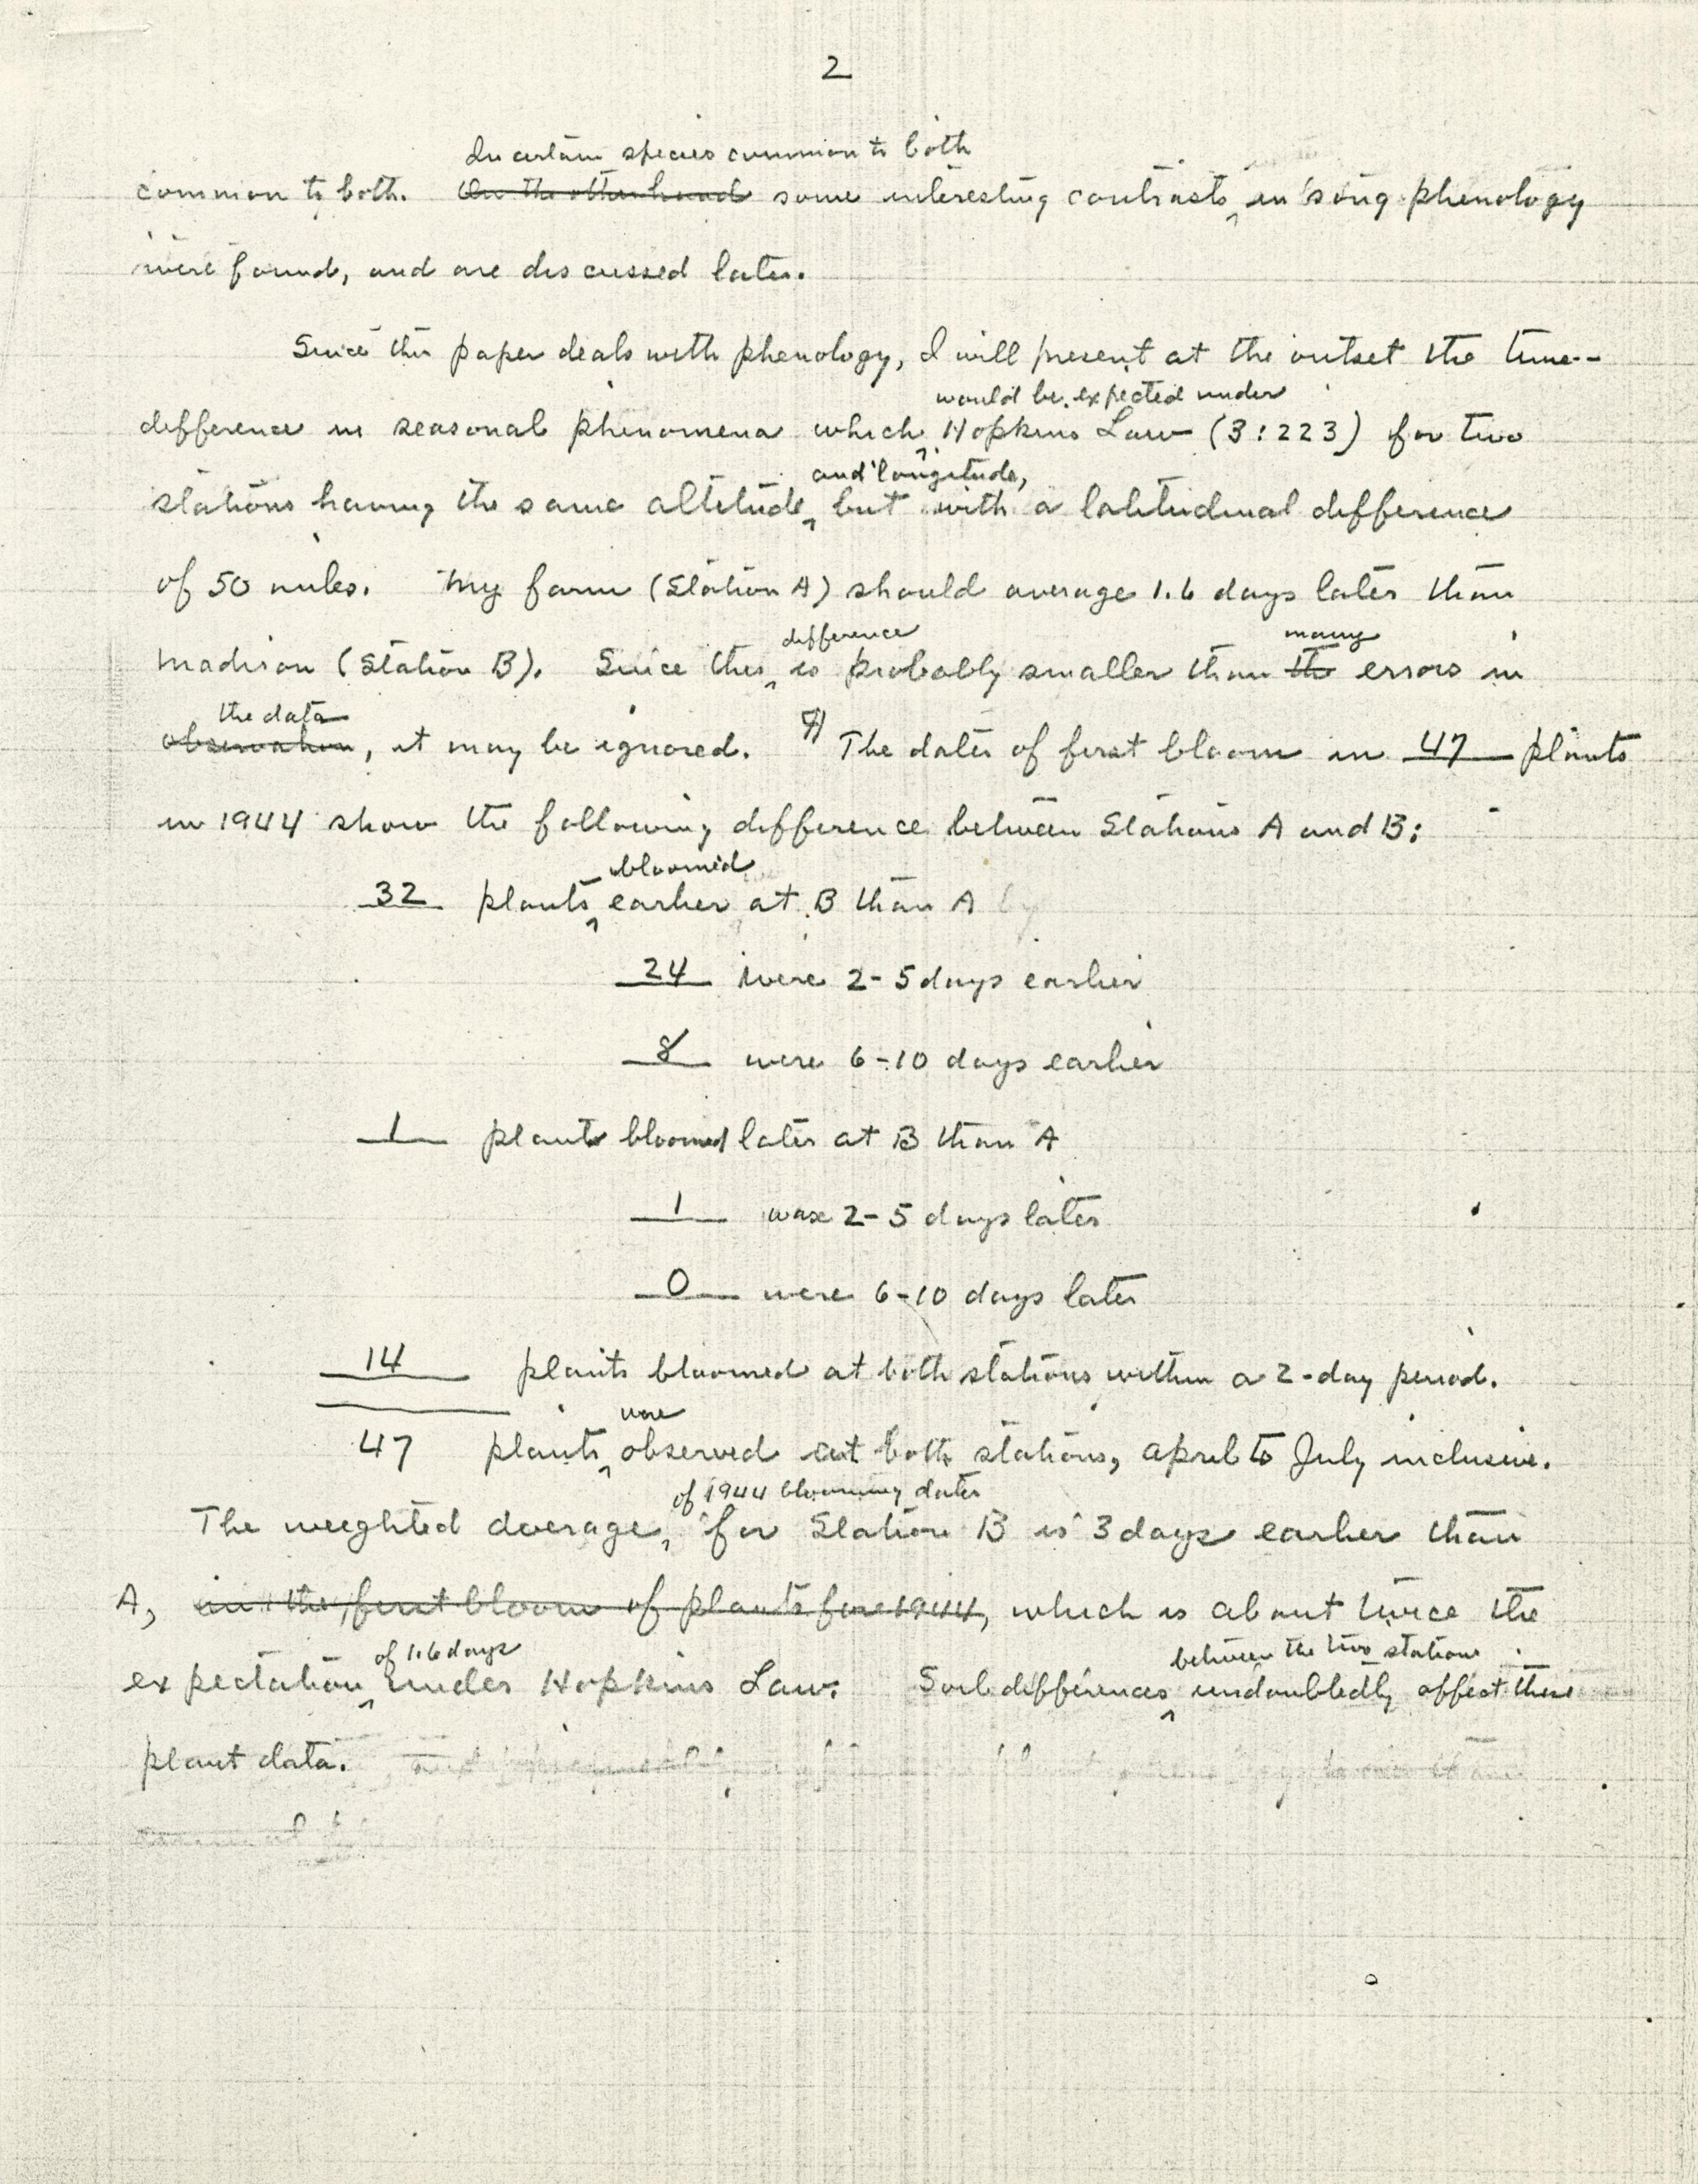 2
In certain species common to both
common to both. On the other hand some interesting contrasts in song phenology
were found, and are discussed later.
Since this paper deals with phenology, I will present at the outset the time-
would be expected under
difference in seasonal phenomena which Hopkins Law (3:223) for two
and longitude,
stations having the same altitude but with a latitudinal difference
of 50 miles. My farm (Station A) should average 1.6 days later than
difference many
Madison (Station B). Since this is probably smaller than the errors in
the data
observation, it may be ignored. ¶ The dates of first bloom in 47 plants
in 1944 show the following difference between Stations A and B:
bloomed
32 plants earlier at B than A by
24 were 2-5 days earlier
8 were 6-10 days earlier
1 plant bloomed later at B than A
1 was 2-5 days later
0 were 6-10 days later
14 plants bloomed at both stations within a 2-day period.
were
47 plants observed at both stations, April to July inclusive.
of 1944 blooming dates
The weighted average, for Station B is 3 days earlier than
A, in the first bloom of plants for 1944, which is about twice the
of 1.6 days between the two stations
expectation under Hopkins Law. Soil differences undoubtedly affect these
plant data.